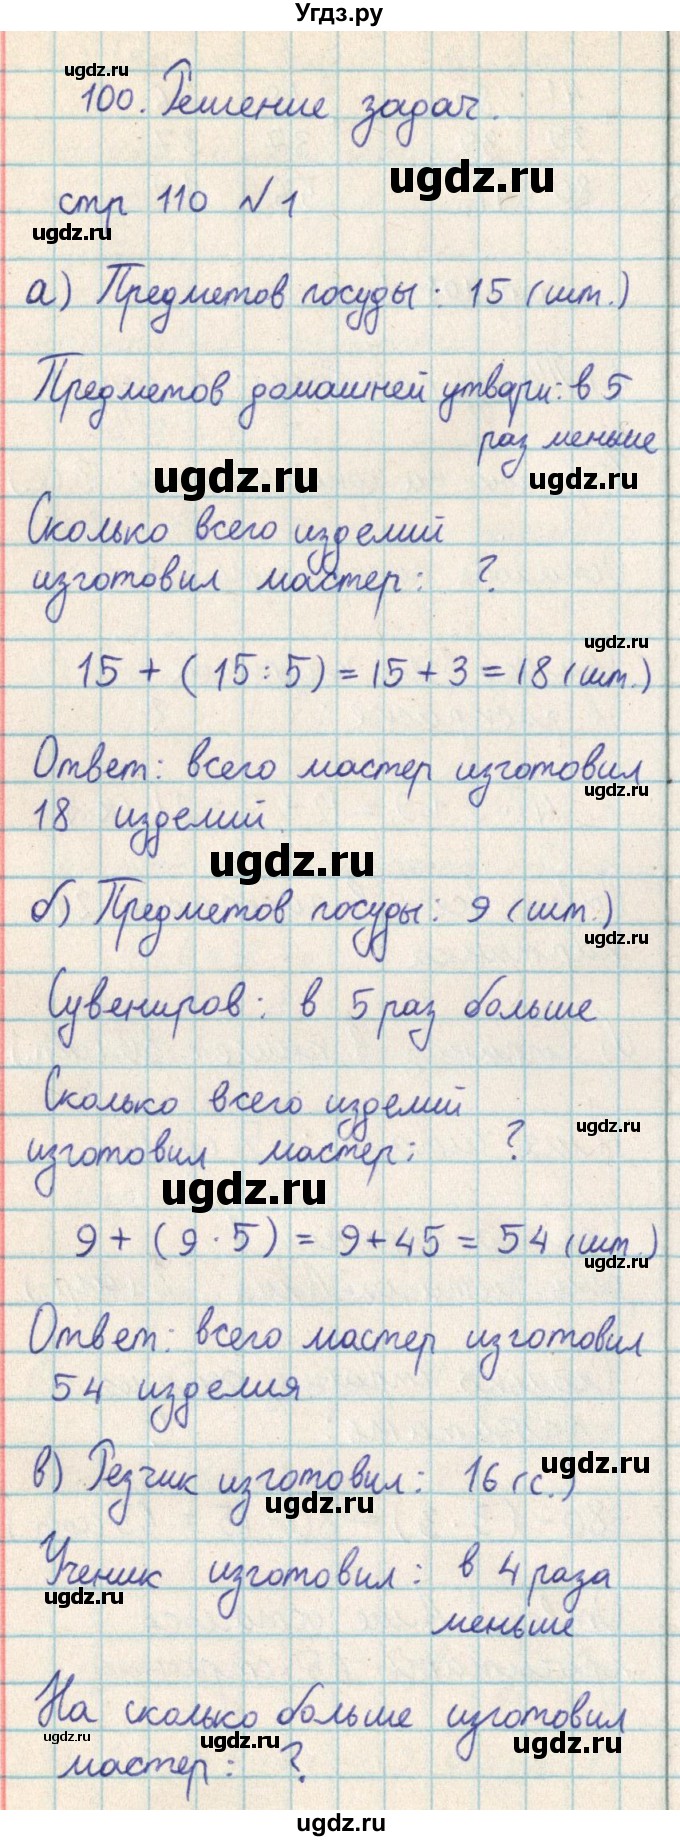 Угдз.ру
ugdz.ru
100. Решение задач.
ugdz.ru
стр 110 №1
ugdz.ru
а) Предметов посуды: 15 (шт.)
Предметов домашней утвари: в 5
раз меньше
ugdz.ru
ugdz.ru
Сколько всего изделий
изготовил мастер: ?
ugdz.ru
15 + (15:5) = 15 + 3 = 18 (шт.)
Ответ: всего мастер изготовил
ugdz.ru
18 изделий.
ugdz.ru
б) Предметов посуды: 9 (шт.)
ugdz.ru
Сувениров: в 5 раз больше
Сколько всего изделий
ugdz.ru
изготовил мастер: ?
ugdz.ru
9 + (9 · 5) = 9 + 45 = 54 (шт.)
ugdz.ru
Ответ: всего мастер изготовил
54 изделия
ugdz.ru
в) Резчик изготовил: 16 (с.)
ugdz.ru
Ученик изготовил: в 4 раза
ugdz.ru
меньше
На сколько больше изготовил
ugdz.ru
ugdz.ru
ugdz.ru
мастер: ?
ugdz.ru